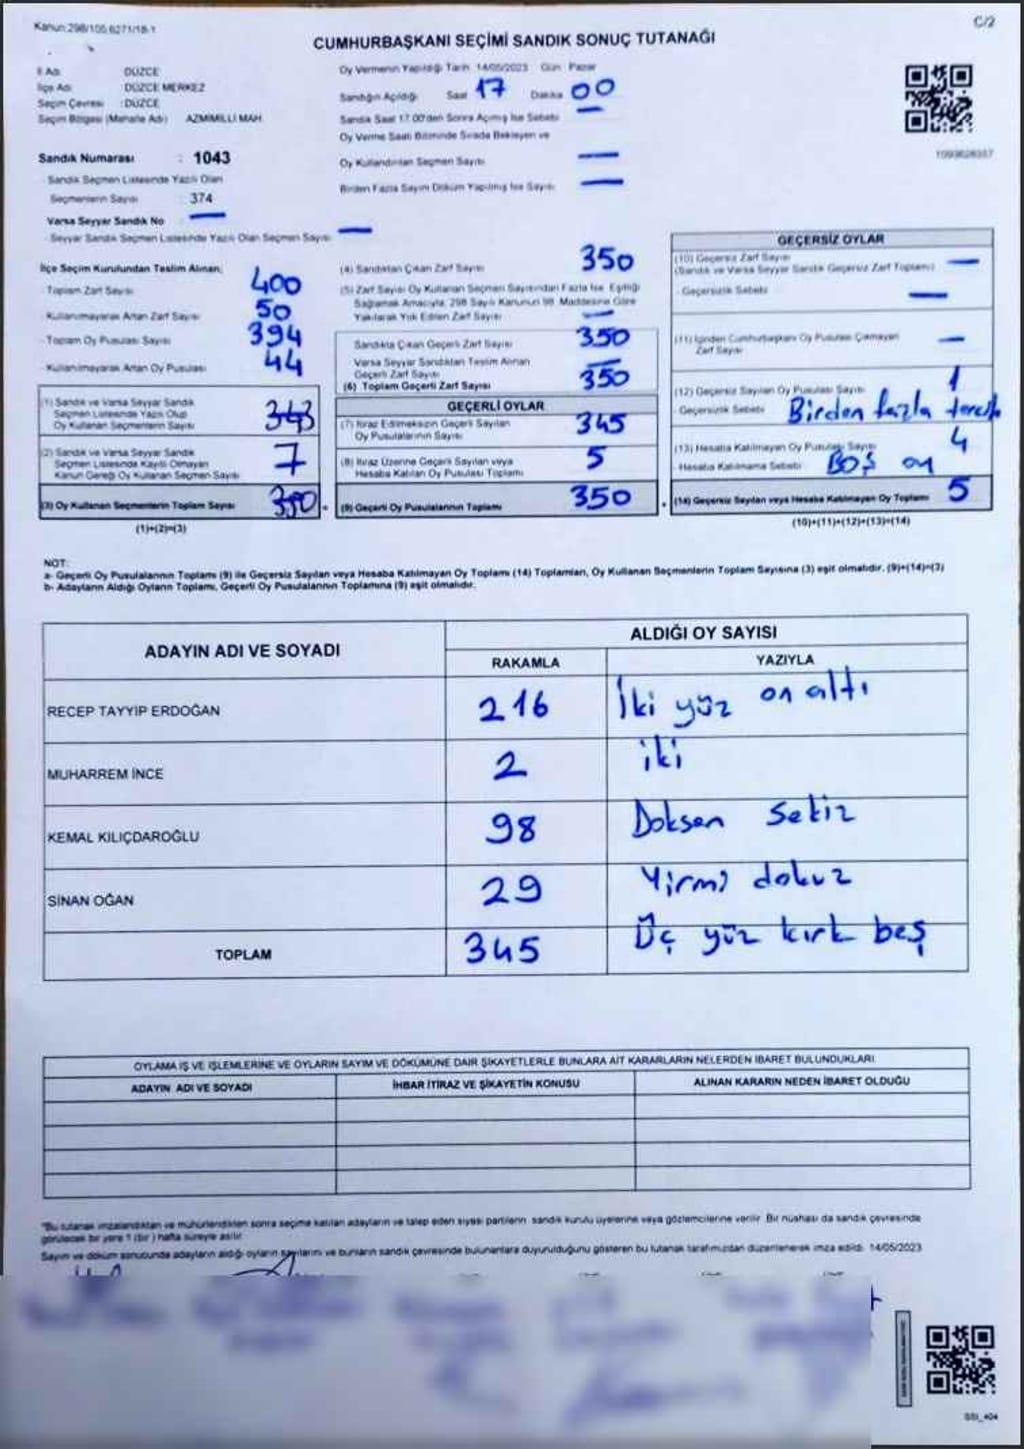 Kanun:298/105.6271/18-1
C/2
CUMHURBAŞKANI SEÇİMİ SANDIK SONUÇ TUTANAĞI
İl Adı DÜZCE
İlçe Adı DÜZCE MERKEZ
Seçim Çevresi : DÜZCE
Seçim Bölgesi (Mahalle Adı) AZMİMİLLİ MAH.
Oy Vermenin Yapıldığı Tarih 14/05/2023 Gün Pazar
Sandığın Açıldığı Saat 17 Dakika 00
Sandık Saat 17.00'den Sonra Açılmış İse Sebebi
Oy Verme Saati Bitiminde Sırada Bekleyen ve
Oy Kullandırılan Seçmen Sayısı
Birden Fazla Sayım Döküm Yapılmış İse Sayısı
Sandık Numarası : 1043
- Sandık Seçmen Listesinde Yazılı Olan
Seçmenlerin Sayısı : 374
Varsa Seyyar Sandık No
- Seyyar Sandık Seçmen Listesinde Yazılı Olan Seçmen Sayısı
İlçe Seçim Kurulundan Teslim Alınan;
- Toplam Zarf Sayısı 400
- Kullanılmayarak Artan Zarf Sayısı 50
- Toplam Oy Pusulası Sayısı 394
- Kullanılmayarak Artan Oy Pusulası 44
(1) Sandık ve Varsa Seyyar Sandık
Seçmen Listesinde Yazılı Olup
Oy Kullanan Seçmenlerin Sayısı 343
(2) Sandık ve Varsa Seyyar Sandık
Seçmen Listesinde Kayıtlı Olmayan
Kanun Gereği Oy Kullanan Seçmen Sayısı 7
(3) Oy Kullanan Seçmenlerin Toplam Sayısı 350
(1)+(2)=(3)
(4) Sandıktan Çıkan Zarf Sayısı 350
(5) Zarf Sayısı Oy Kullanan Seçmen Sayısından Fazla İse Eşitliği
Sağlamak Amacıyla, 298 Sayılı Kanunun 98. Maddesine Göre
Yakılarak Yok Edilen Zarf Sayısı
Sandıkta Çıkan Geçerli Zarf Sayısı 350
Varsa Seyyar Sandıktan Teslim Alınan
Geçerli Zarf Sayısı
(6) Toplam Geçerli Zarf Sayısı 350
GEÇERLİ OYLAR
(7) İtiraz Edilmeksizin Geçerli Sayılan
Oy Pusulalarının Sayısı 345
(8) İtiraz Üzerine Geçerli Sayılan veya
Hesaba Katılan Oy Pusulası Toplamı 5
(9) Geçerli Oy Pusulalarının Toplamı 350
GEÇERSİZ OYLAR
(10) Geçersiz Zarf Sayısı
(Sandık ve Varsa Seyyar Sandık Geçersiz Zarf Toplamı)
- Geçersizlik Sebebi
(11) İçinden Cumhurbaşkanı Oy Pusulası Çıkmayan
Zarf Sayısı
(12) Geçersiz Sayılan Oy Pusulası Sayısı 1
- Geçersizlik Sebebi Birden fazla tercih
(13) Hesaba Katılmayan Oy Pusulası Sayısı 4
- Hesaba Katılmama Sebebi BOŞ oy
(14) Geçersiz Sayılan veya Hesaba Katılmayan Oy Toplamı 5
(10)+(11)+(12)+(13)=(14)
NOT:
a- Geçerli Oy Pusulalarının Toplamı (9) ile Geçersiz Sayılan veya Hesaba Katılmayan Oy Toplamı (14) Toplamları, Oy Kullanan Seçmenlerin Toplam Sayısına (3) eşit olmalıdır. (9)+(14)=(3)
b- Adayların Aldığı Oyların Toplamı, Geçerli Oy Pusulalarının Toplamına (9) eşit olmalıdır.
ADAYIN ADI VE SOYADI
ALDIĞI OY SAYISI
RAKAMLA YAZIYLA
RECEP TAYYİP ERDOĞAN 216 İki yüz on altı
MUHARREM İNCE 2 iki
KEMAL KILIÇDAROĞLU 98 Doksan Sekiz
SİNAN OĞAN 29 Yirmi dokuz
TOPLAM 345 Üç yüz kırk beş
OYLAMA İŞ VE İŞLEMLERİNE VE OYLARIN SAYIM VE DÖKÜMÜNE DAİR ŞİKAYETLERLE BUNLARA AİT KARARLARIN NELERDEN İBARET BULUNDUKLARI
ADAYIN ADI VE SOYADI İHBAR İTİRAZ VE ŞİKAYETİN KONUSU ALINAN KARARIN NEDEN İBARET OLDUĞU
"Bu tutanak imzalandıktan ve mühürlendikten sonra seçime katılan adayların ve talep eden siyasi partilerin sandık kurulu üyelerine veya gözlemcilerine verilir. Bir nüshası da sandık çevresinde
görülecek bir yere 1 (bir) hafta süreyle asılır.
Sayım ve döküm sonucunda adayların aldığı oyların sayılarını ve bunların sandık çevresinde bulunanlara duyurulduğunu gösteren bu tutanak tarafımızdan düzenlenerek imza edildi. 14/05/2023
SSI_404